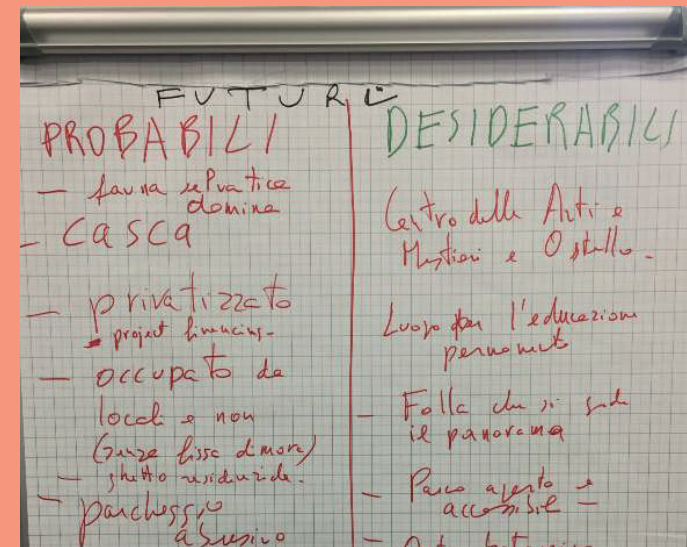 FUTURE
PROBABILI
— fauna selvatica
domina
— CASCA
— privatizzato
project financing -
— occupato da
locali e non
(senza fissa dimora)
— ghetto residuale.
— parcheggio
abusivo
DESIDERABILI
Centro delle Arti e
Mestieri e Ostello -
Luogo per l'educazione
permanente
— Folla che si gode
il panorama
— Parco aperto e
accessibile —